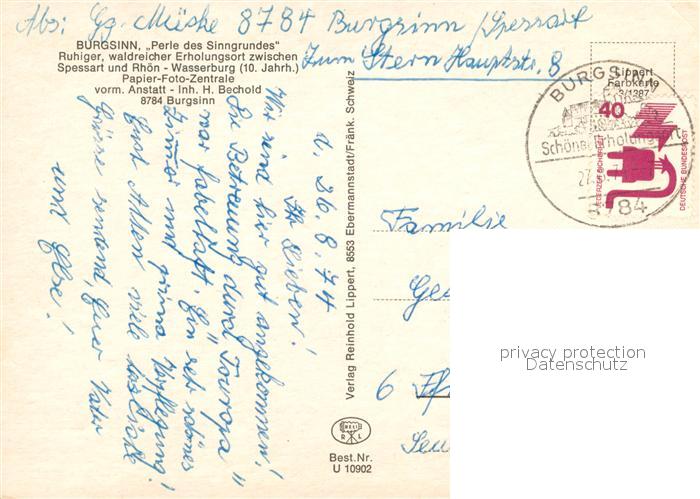 Abs: Gg. Müske 8784 Burgsinn/Spessart
Zum Stern Hauptstr. 8
BURGSINN, „Perle des Sinngrundes"
Ruhiger, waldreicher Erholungsort zwischen
Spessart und Rhön - Wasserburg (10. Jahrh.)
Papier-Foto-Zentrale
vorm. Anstatt - Inh. H. Bechold
8784 Burgsinn
d. 26.8.74
Ihr Lieben!
Wir sind hier gut angekommen!
Die Betreuung durch "Touropa"
war fabelhaft. Ein sehr schönes
Zimmer und prima Verpflegung!
Euch Allen viele herzliche
Grüsse sendend, Euer Vater
und Else!
Verlag Reinhold Lippert, 8553 Ebermannstadt/Fränk. Schweiz
RELI
R L
Best.Nr.
U 10902
Lippert
Farbkarte
BURGSINN
Schöner Erholungsort
8784
40
DEUTSCHE BUNDESPOST
Familie
6
privacy protection
Datenschutz